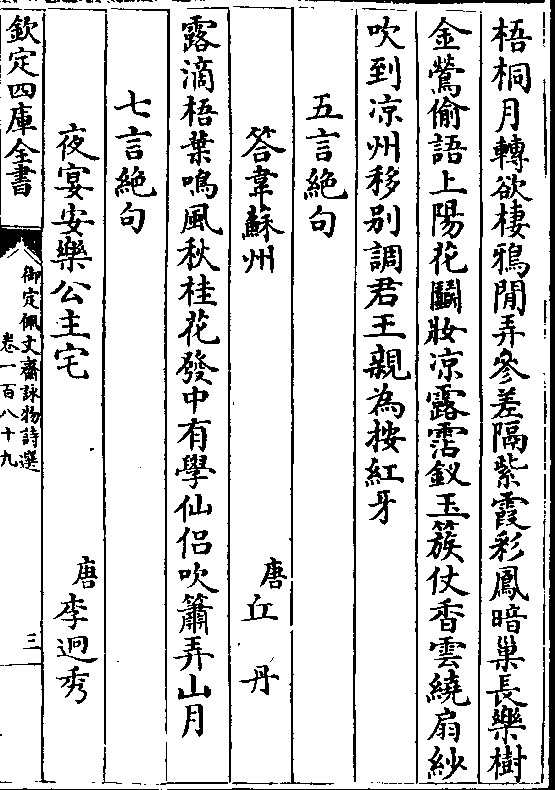 梧桐月轉欲棲鴉閒弄參差隔紫霞彩鳳暗巢長樂樹
金鶯偷語上陽花鬭妝凉露霑釵玉簇仗香雲繞扇紗
吹到凉州移別調君王親為按紅牙
五言絶句
答韋蘇州 唐丘丹
露滴梧葉鳴風秋桂花發中有學仙侣吹簫弄山月
七言絶句
夜宴安樂公主宅 唐李迥秀
欽定四庫全書
御定佩文齋詠物詩選
卷一百八十九
三